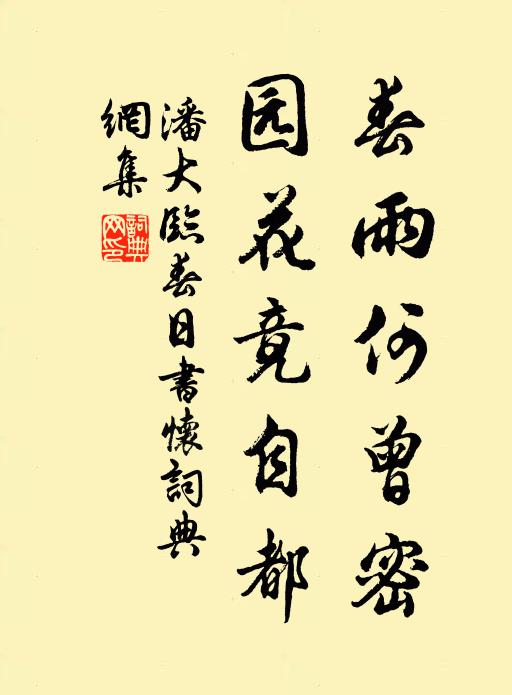 春雨何曾密
园花竟自都
潘大臨春日書懷詞典
網集
詞典网印